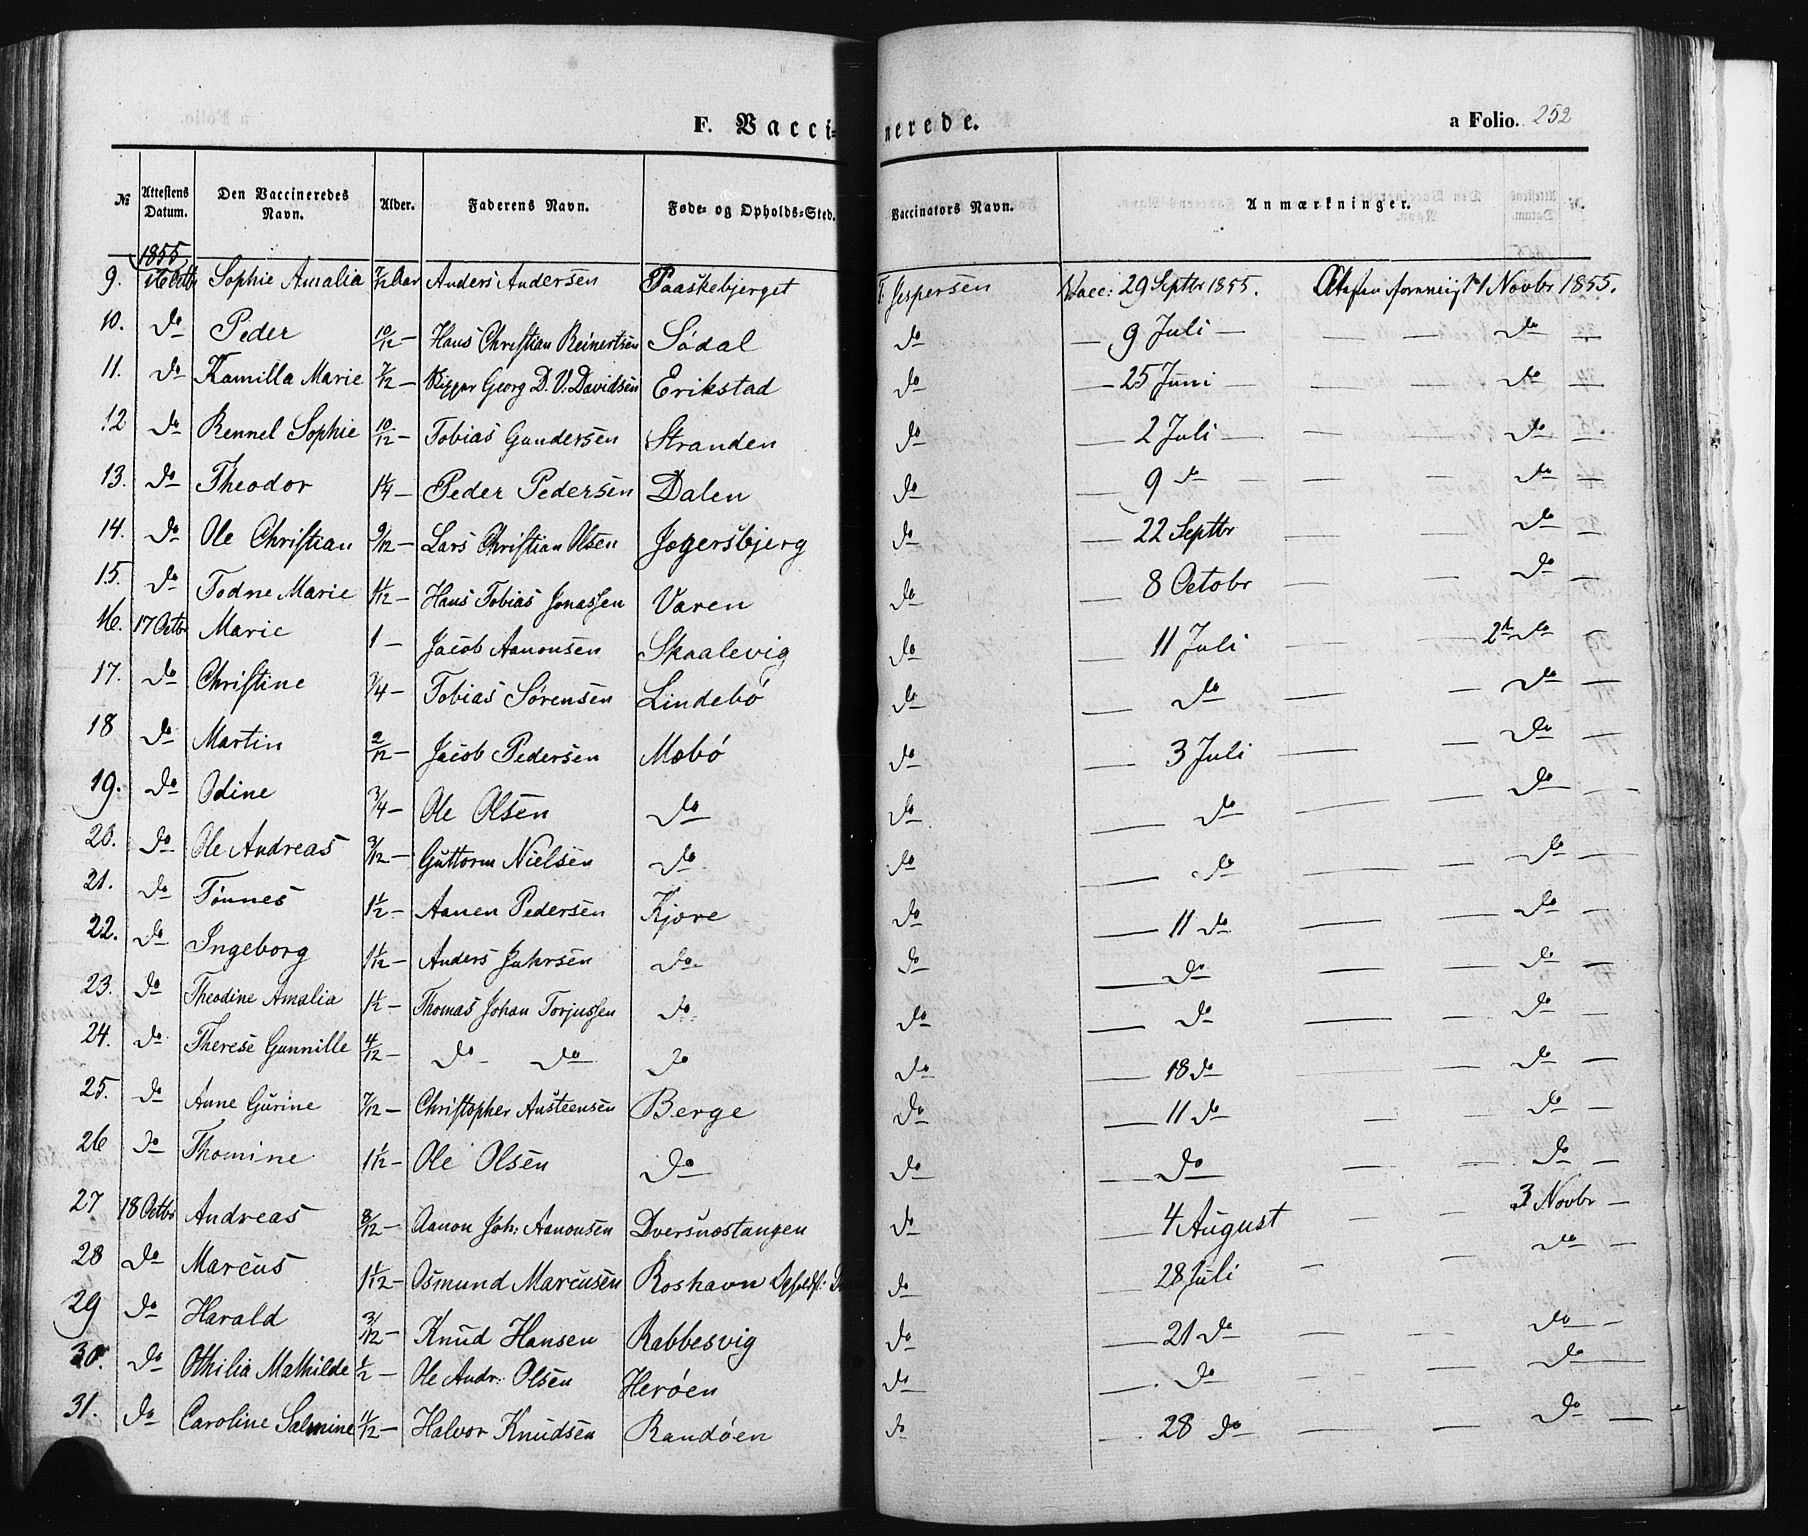 F. Vaccinerede.
a Folio. 252
№ | Attestens Datum. | Den Vaccineredes Navn. | Alder. | Faderens Navn. | Føde- og Opholds-Sted. | Vaccinators Navn. | Anmærkninger.
1855
9. | 16 Octb | Sophie Amalia | 7/12 Aar | Anders Andersen | Paaskebjerget | T. Jespersen | Vacc: 29 Septbr 1855. | 1 Novbr 1855.
10. | do | Peder | 10/12 — | Hans Christian Reinertsen | Södal | do | — 9 Juli — | — — do —
11. | do | Kamilla Marie | 7/12 — | Georg D. V. Davidsen | Erikstad | do | — 25 Juni — | — — do —
12 | do | Rennel Sophie | 10/12 — | Tobias Gundersen | Stranden | do | — 2 Juli — | — — do —
13. | do | Theodor | 1 1/4 — | Peder Pedersen | Dalen | do | — 9 do — | — — do —
14. | do | Ole Christian | 9/12 — | Lars Christian Olsen | Jegersbjerg | do | — 22 Septbr | — — do
15. | do | Todne Marie | 1 1/12 — | Hans Tobias Jonassen | Varen | do | — 8 Octobr | — — do
16. | 17 Octbr | Marie | 1 — | Jacob Aanonsen | Skaalevig | do | — 11 Juli | — — 2 do —
17. | do | Christine | 3/4 — | Tobias Sørensen | Lindebö | do | — do | — — do —
18 | do | Martin | 2/12 — | Jacob Pedersen | Mæbö | do | — 3 Juli | — — do —
19. | do | Odine | 3/4 — | Ole Olsen | do | do | — do | — — do —
20. | do | Ole Andreas | 3/12 — | Guttorm Nielsen | do | do | — do | — — do —
21. | do | Tönnes | 1 1/2 — | Aanen Pedersen | Kjære | do | — 11 do | — — do —
22. | do | Ingeborg | 1 1/12 — | Anders Juhrsen | do | do | — do | — — do —
23. | do | Theodine Amalia | 1 1/2 — | Thomas Johan Torjussen | do | do | — do | — — do —
24. | do | Therese Gunnille | 4/12 — | do do | do | do | — 18 do | — — do —
25. | do | Anne Gurine | 7/12 — | Christopher Austeensen | Berge | do | — 11 do | — — do —
26 | do | Thomine | 1 1/12 — | Ole Olsen | do | do | — do | — — do —
27 | 18 Octbr | Andreas | 8/12 — | Aanon Joh: Aanonsen | Dversnæstangen | do | — 4 August | — — 3 Novbr —
28 | do | Marcus | 1 1/12 — | Osmund Marcusen | Roshavn | do | — 28 Juli | — — do —
29 | do | Harald | 3/12 — | Knud Hansen | Rabbesvig | do | — 21 do | — — do —
30. | do | Othilia Mathilde | 1/2 — | Ole Andr: Olsen | Heröen | do | — do | — — do —
31. | do | Caroline Salmine | 11/12 — | Halvor Knudsen | Randöen | do | — 28 do | — — do —